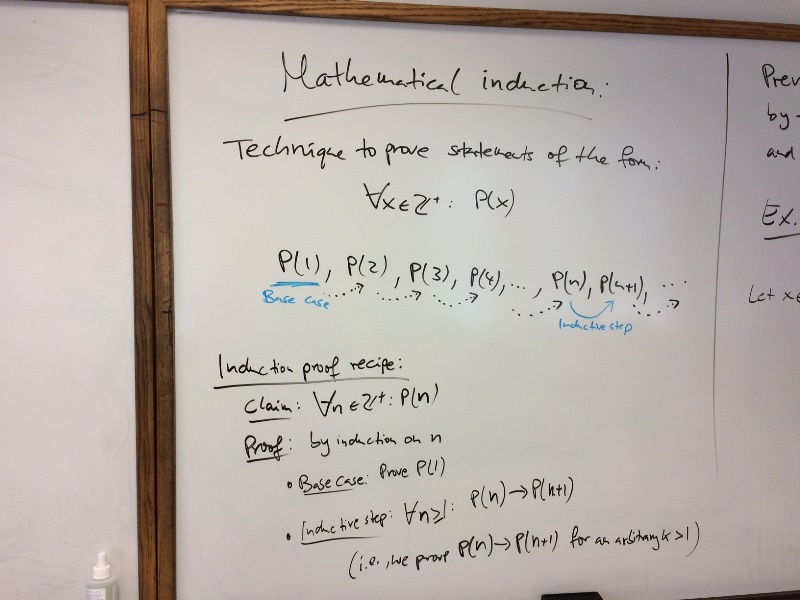 Mathematical induction:
Technique to prove statements of the form:
∀x∈ℤ⁺: P(x)
P(1), P(2), P(3), P(4), ..., P(n), P(n+1), ...
Base case
Inductive step
Induction proof recipe:
Claim: ∀n∈ℤ⁺: P(n)
Proof: by induction on n
• Base Case: Prove P(1)
• Inductive step: ∀n≥1: P(n)→P(n+1)
(i.e., we prove P(n)→P(n+1) for an arbitrary k>1)
Prev
by
and
Ex.
Let x∈